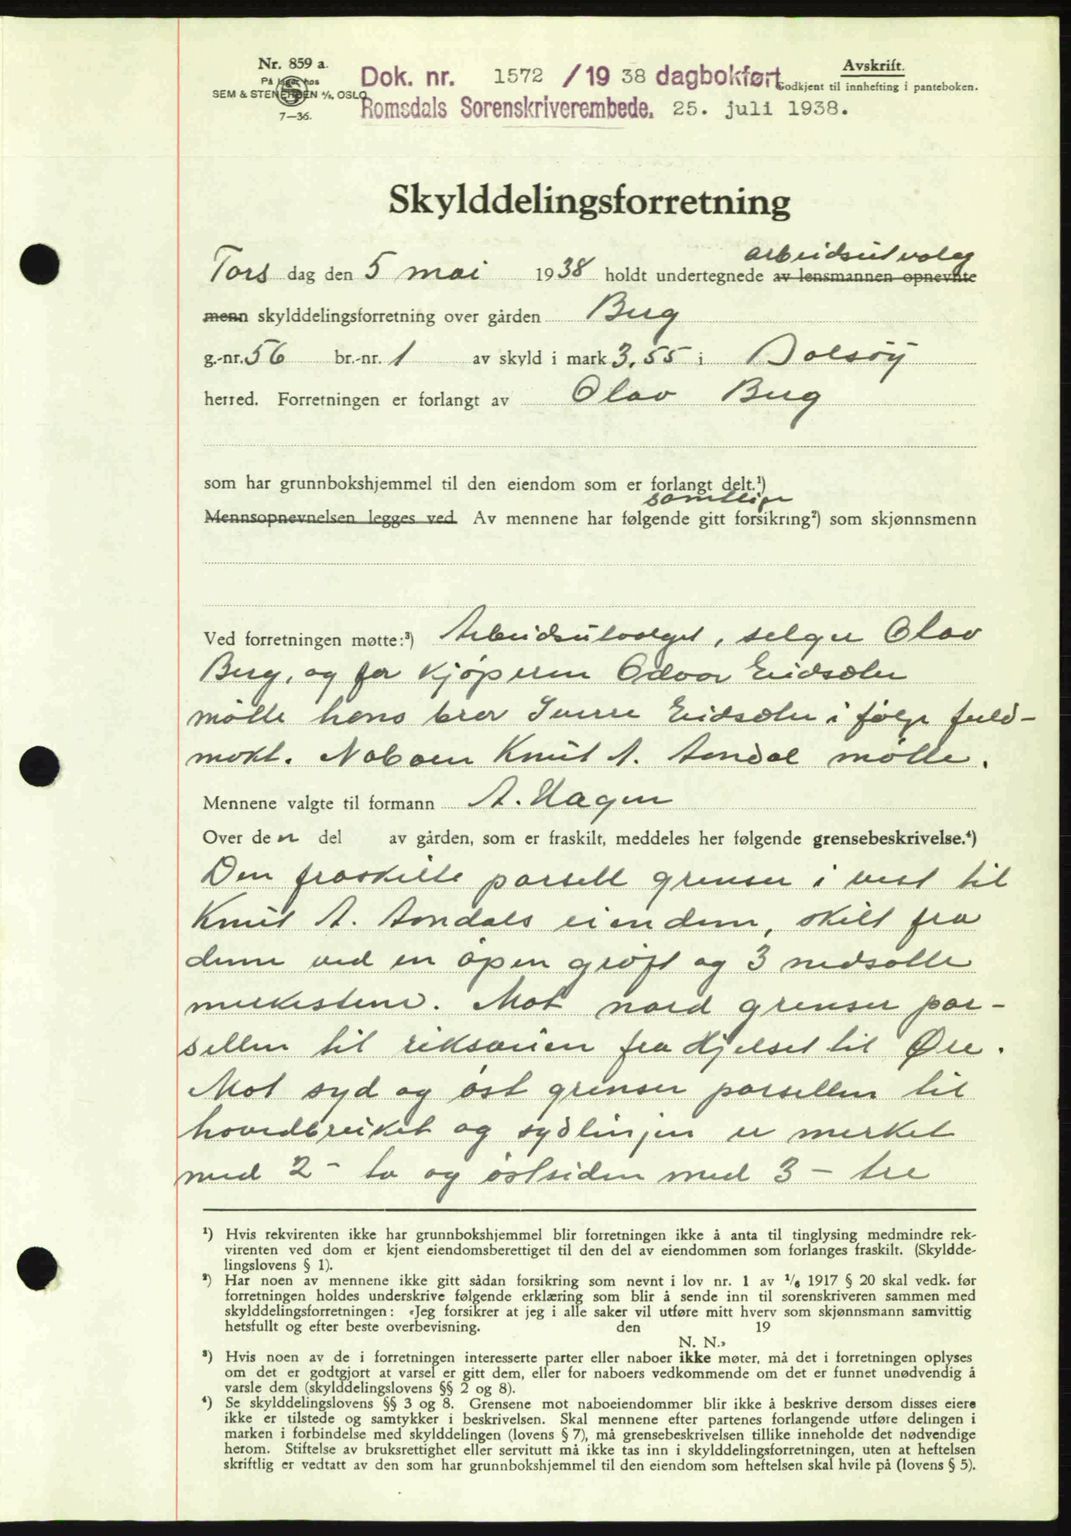 Nr. 859 a.
På lager hos
SEM & STENERSEN A/S, OSLO
7—36.
Dok. nr. 1572 /19 38 dagbokført
Romsdals Sorenskriverembede. 25. juli 1938.
Avskrift.
Godkjent til innhefting i panteboken.
Skylddelingsforretning
arbeidsutvalg
Tors dag den 5 mai 1938 holdt undertegnede av lensmannen opnevnte
menn skylddelingsforretning over gården Berg
g.-nr. 56 br.-nr. 1 av skyld i mark 3,55 i Bolsøy
herred. Forretningen er forlangt av Olav Berg
som har grunnbokshjemmel til den eiendom som er forlangt delt.¹)
samtlige
Mennsopnevnelsen legges ved. Av mennene har følgende gitt forsikring²) som skjønnsmenn
Ved forretningen møtte:³) Arbeidsutvalget, selger Olav
Berg, og for kjøperen Odvar Eidsæter
møtte hans bror Sverre Eidsæter i følge fuld-
makt. Naboen Knut A. Aandal møtte.
Mennene valgte til formann A. Hagen
Over den del av gården, som er fraskilt, meddeles her følgende grensebeskrivelse.⁴)
Den fraskilte parsell grenser i vest til
Knut A. Aandals eiendom, skilt fra
denne ved en åpen grøft og 3 nedsatte
merkestene. Mot nord grenser par-
sellen til riksveien fra Hjelset til Øre.
Mot syd og øst grenser parsellen til
hovedbruket og sydlinjen er merket
med 2 - to og østsiden med 3 - tre
¹) Hvis rekvirenten ikke har grunnbokshjemmel blir forretningen ikke å anta til tinglysing medmindre rek-
virenten ved dom er kjent eiendomsberettiget til den del av eiendommen som forlanges fraskilt. (Skyldde-
lingslovens § 1).
²) Har noen av mennene ikke gitt sådan forsikring som nevnt i lov nr. 1 av ¹/₆ 1917 § 20 skal vedk. før
forretningen holdes underskrive følgende erklæring som blir å sende inn til sorenskriveren sammen med
skylddelingsforretningen: «Jeg forsikrer at jeg i alle saker vil utføre mitt hverv som skjønnsmann samvittig
hetsfullt og efter beste overbevisning. den 19
N. N.»
³) Hvis noen av de i forretningen interesserte parter eller naboer ikke møter, må det i forretningen oplyses
om det er godtgjort at varsel er gitt dem, eller for naboers vedkommende om det er funnet unødvendig å
varsle dem (skylddelingslovens §§ 2 og 8).
⁴) Se skylddelingslovens §§ 3 og 8. Grensene mot naboeiendommer blir ikke å beskrive dersom disses eiere
ikke er tilstede og samtykker i beskrivelsen. Skal mennene efter partenes forlangende utføre delingen i
marken i forbindelse med skylddelingen (lovens § 7), må grensebeskrivelsen tillike inneholde det nødvendige
herom. Stiftelse av bruksrettighet eller servitutt må ikke tas inn i skylddelingsforretningen, uten at heftelsen
skriftlig er vedtatt av den som har grunnbokshjemmel til den eiendom som heftelsen skal hvile på (lovens § 5).